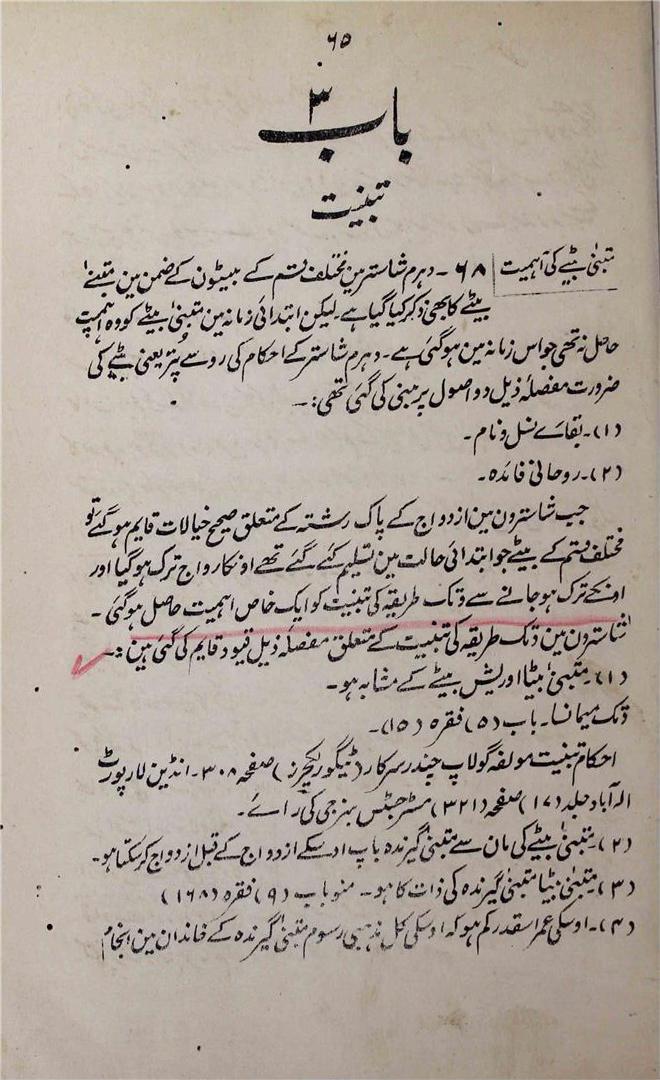 ۶۵
باب
۳
تبنیت
متبنیٰ بیٹے کی اہمیت | ۶۸ - دہرم شاسترمین مختلف قسم کے بیٹون کے ضمن مین متبنےٰ
بیٹے کا بھی ذکر کیا گیا ہے۔ لیکن ابتدائی زمانہ مین متبنیٰ بیٹے کو وہ اہمیت
حاصل نہ تھی جو اس زمانہ مین ہو گئی ہے۔ دہرم شاستر کے احکام کی رو سے پُتر یعنی بیٹے کی
ضرورت مفصلۂ ذیل دو اصول پر مبنی کی گئی تھی:۔
(۱)۔ بقاے نسل و نام۔
(۲)۔ روحانی فائدہ۔
جب شاسترون مین ازدواج کے پاک رشتہ کے متعلق صحیح خیالات قایم ہو گئے تو
مختلف قسم کے بیٹے جو ابتدائی حالت مین تسلیم کئے گئے تھے اونکا رواج ترک ہو گیا اور
اونکے ترک ہو جانے سے دتک طریقہ کی تبنیت کو ایک خاص اہمیت حاصل ہو گئی۔
شاسترون مین دتک طریقہ کی تبنیت کے متعلق مفصلہ ذیل قیود قایم کی گئی ہین:۔
(۱)۔ متبنیٰ بیٹا اوریش بیٹے کے مشابہ ہو۔
دتک میمانسا۔ باب (۵) فقرہ (۱۵)۔
احکام تبنیت مولفہ گولاپ چندر سرکار (ٹیگور لکچرز) صفحہ ۳۰۸۔ انڈین لا رپورٹ
الہ آباد جلد (۱۷) صفحہ (۳۲۱) مسٹر جسٹس بنرجی کی راے۔
(۲)۔ متبنیٰ بیٹے کی مان سے متبنیٰ گیرندہ باپ اوسکے ازدواج کے قبل ازدواج کر سکتا ہو۔
(۳)۔ متبنیٰ بیٹا متبنیٰ گیرندہ کی ذات کا ہو۔ منو باب (۹) فقرہ (۱۶۸)
(۴)۔ اوسکی عمر اسقدر کم ہو کہ اوسکی کل مذہبی رسوم متبنیٰ گیرندہ کے خاندان مین انجام